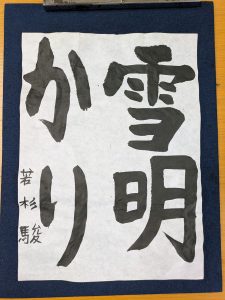 雪明
かり
若杉駿